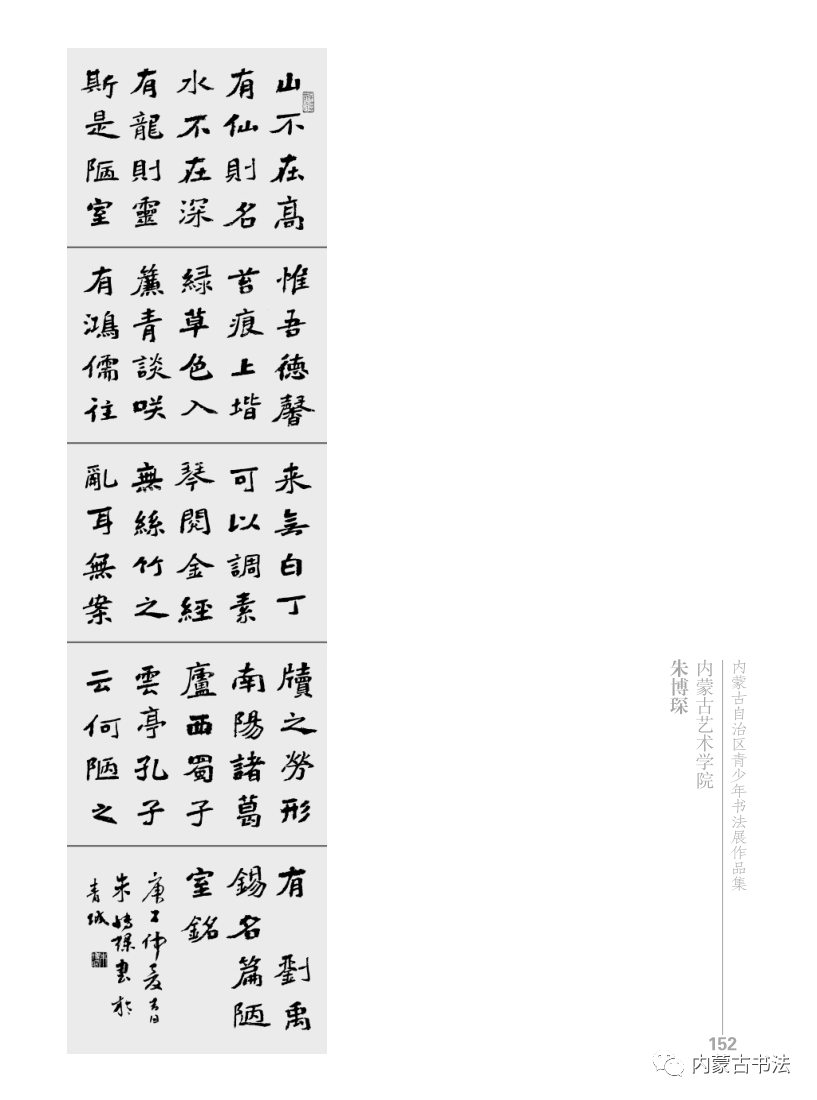 山不在高
有仙則名
水不在深
有龍則靈
斯是陋室
惟吾德馨
苔痕上堦
緑草色入
簾青談咲
有鴻儒往
来無白丁
可以調素
琴閱金經
無絲竹之
亂耳無案
牘之勞形
南陽諸葛
廬西蜀子
雲亭孔子
云何陋之
有 劉禹
錫名篇陋
室銘
庚子仲夏吉日
朱博琛書於
青城
内蒙古自治区青少年书法展作品集
内蒙古艺术学院
朱博琛
152
内蒙古书法